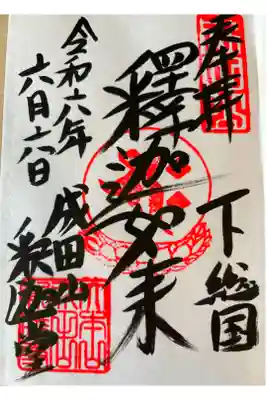 奉拝
下総国
釋迦如来
成田山
釈迦堂
令和六年
六月六日